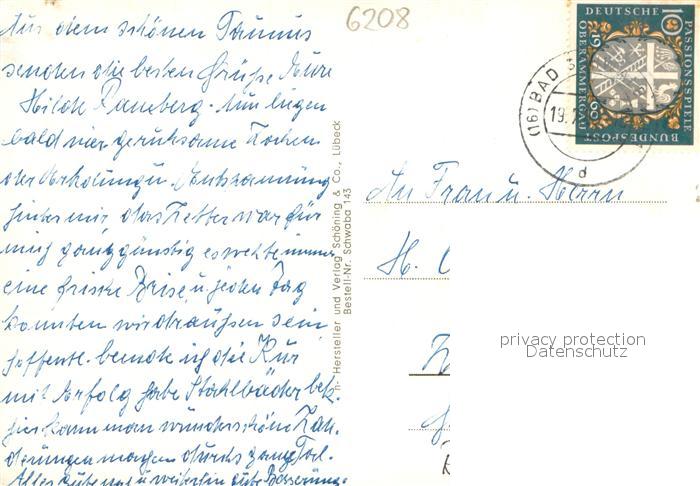 6208
Aus dem schönen Taunus
senden die besten Grüße Eure
Hilde Ramberg. Nun liegen
bald vier geruhsame Wochen
der Erholung u. Entspannung
hinter mir, das Wetter war für
mich ganz günstig es wehte immer
eine frische Brise, u. jeden Tag
konnten wir draußen sein
hoffentl. beende ich die Kur
mit Erfolg habe Stahlbäder bek.
hier kann man wunderschön Wan-
derungen machen durchs ganze Tal.
Alles Gute u. weiterhin gute Besserung
n- Hersteller und Verlag Schöning & Co., Lübeck
Bestell-Nr. Schwaba 143
DEUTSCHE
BUNDESPOST
PASSIONSSPIELE
OBERAMMERGAU
1960
10
(16) BAD S
19.
d
An Frau u. Herrn
H.
privacy protection
Datenschutz